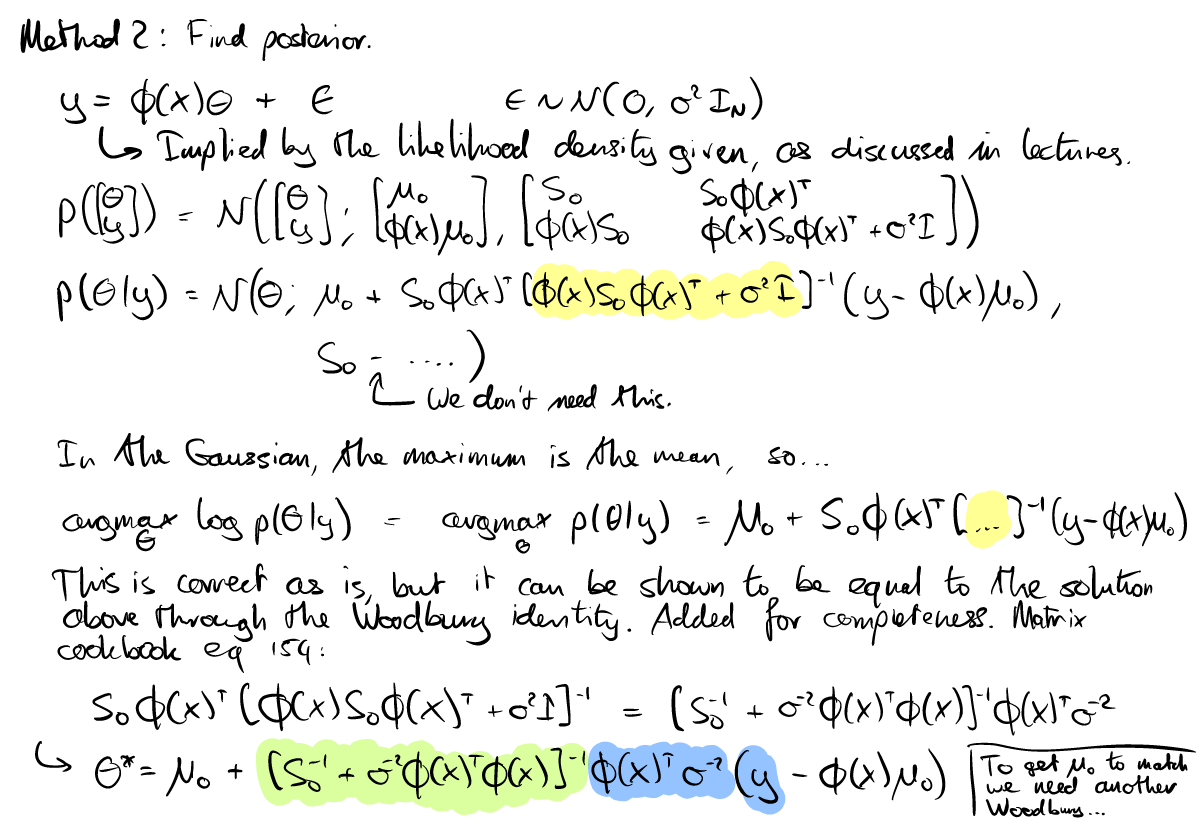 Method 2: Find posterior.
y = ϕ(x)θ + ϵ    ϵ ~ N(0, σ² I_N)
↳ Implied by the likelihood density given, as discussed in lectures.
p([θ; y]) = N([θ; y]; [μ₀; ϕ(x)μ₀], [S₀  S₀ϕ(x)ᵀ; ϕ(x)S₀  ϕ(x)S₀ϕ(x)ᵀ + σ²I])
p(θ|y) = N(θ; μ₀ + S₀ϕ(x)ᵀ[ϕ(x)S₀ϕ(x)ᵀ + σ²I]⁻¹(y - ϕ(x)μ₀),
S₀ - ....)
We don't need this.
In the Gaussian, the maximum is the mean, so...
argmax_θ log p(θ|y) = argmax_θ p(θ|y) = μ₀ + S₀ϕ(x)ᵀ[...]⁻¹(y-ϕ(x)μ₀)
This is correct as is, but it can be shown to be equal to the solution
above through the Woodbury identity. Added for completeness. Matrix
cookbook eq 159:
S₀ϕ(x)ᵀ[ϕ(x)S₀ϕ(x)ᵀ + σ²I]⁻¹ = [S₀⁻¹ + σ⁻²ϕ(x)ᵀϕ(x)]⁻¹ϕ(x)ᵀσ⁻²
↳ θ* = μ₀ + [S₀⁻¹ + σ⁻²ϕ(x)ᵀϕ(x)]⁻¹ϕ(x)ᵀσ⁻²(y - ϕ(x)μ₀)
To get μ₀ to match
we need another
Woodbury...